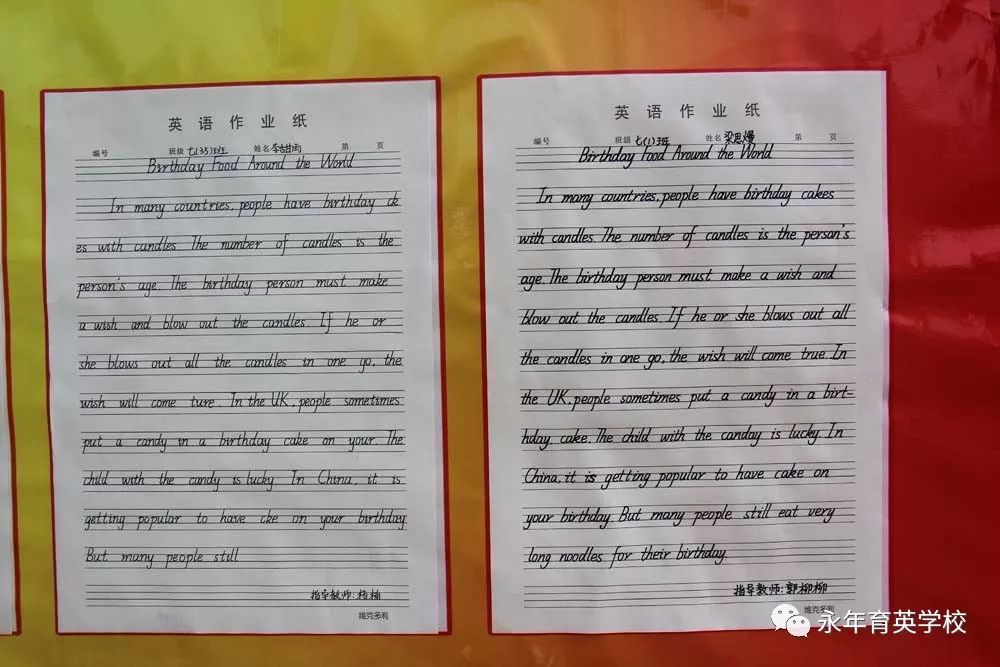 英语作业纸
编号 班级 七(35)班 姓名 李甜雨 第 页
Birthday Food Around the World
In many countries, people have birthday ck
es with candles The number of candles is the
person's age. The birthday person must make
a wish and blow out the candles. If he or
she blows out all the candles in one go, the
wish will come ture. In the UK, people sometimes
put a candy in a birthday cake on your. The
child with the candy is lucky. In China, it is
getting popular to have cke on your birthday
But many people still
指导教师:杨楠
维克多利
英语作业纸
编号 班级 七(1)班 姓名 梁恩熳 第 页
Birthday Food Around the World
In many countries, people have birthday cakes
with candles. The number of candles is the person's
age. The birthday person must make a wish and
blow out the candles. If he or she blows out all
the candles in one go, the wish will come true. In
the UK, people sometimes put a candy in a birt-
hday. cake. The child with the canday is lucky. In
China, it is getting popular to have cake on
your birthday. But many people still eat very
long noodles for their birthday.
指导教师:郭柳柳
维克多利
永年育英学校